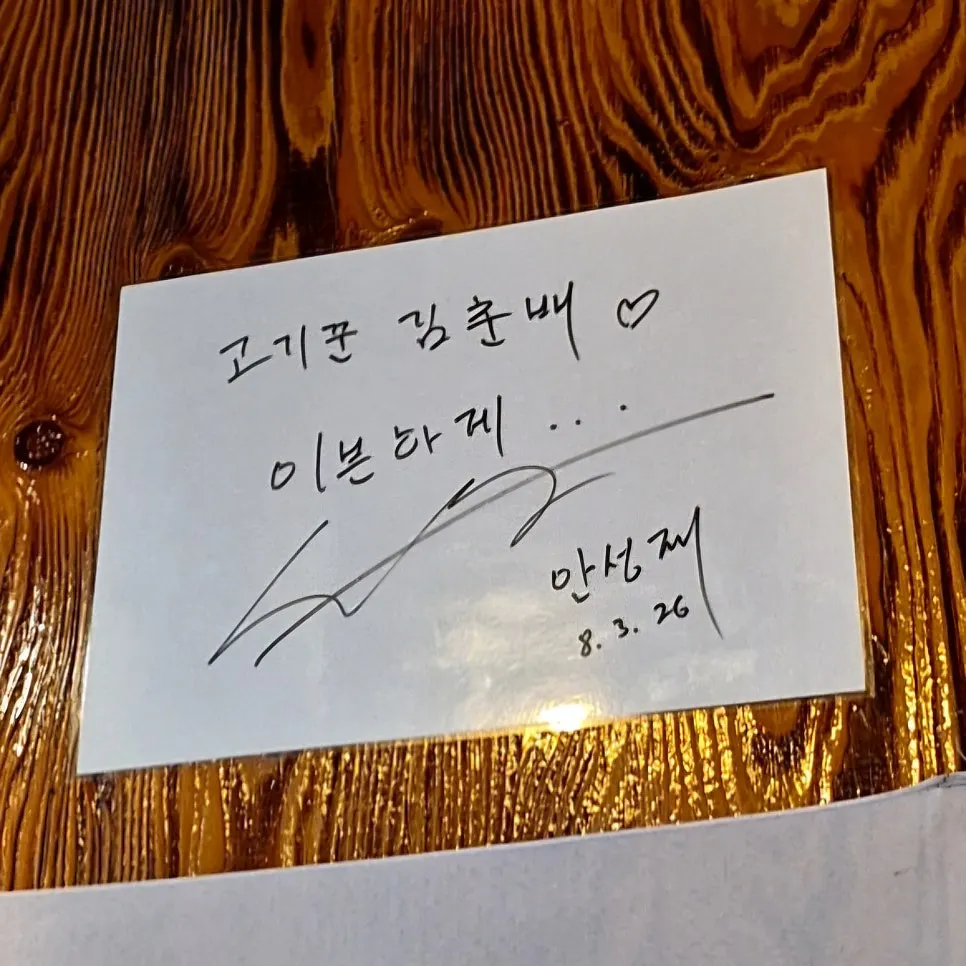 고기꾼 김춘배 ♡
이븐하게...
안성재
8. 3. 26